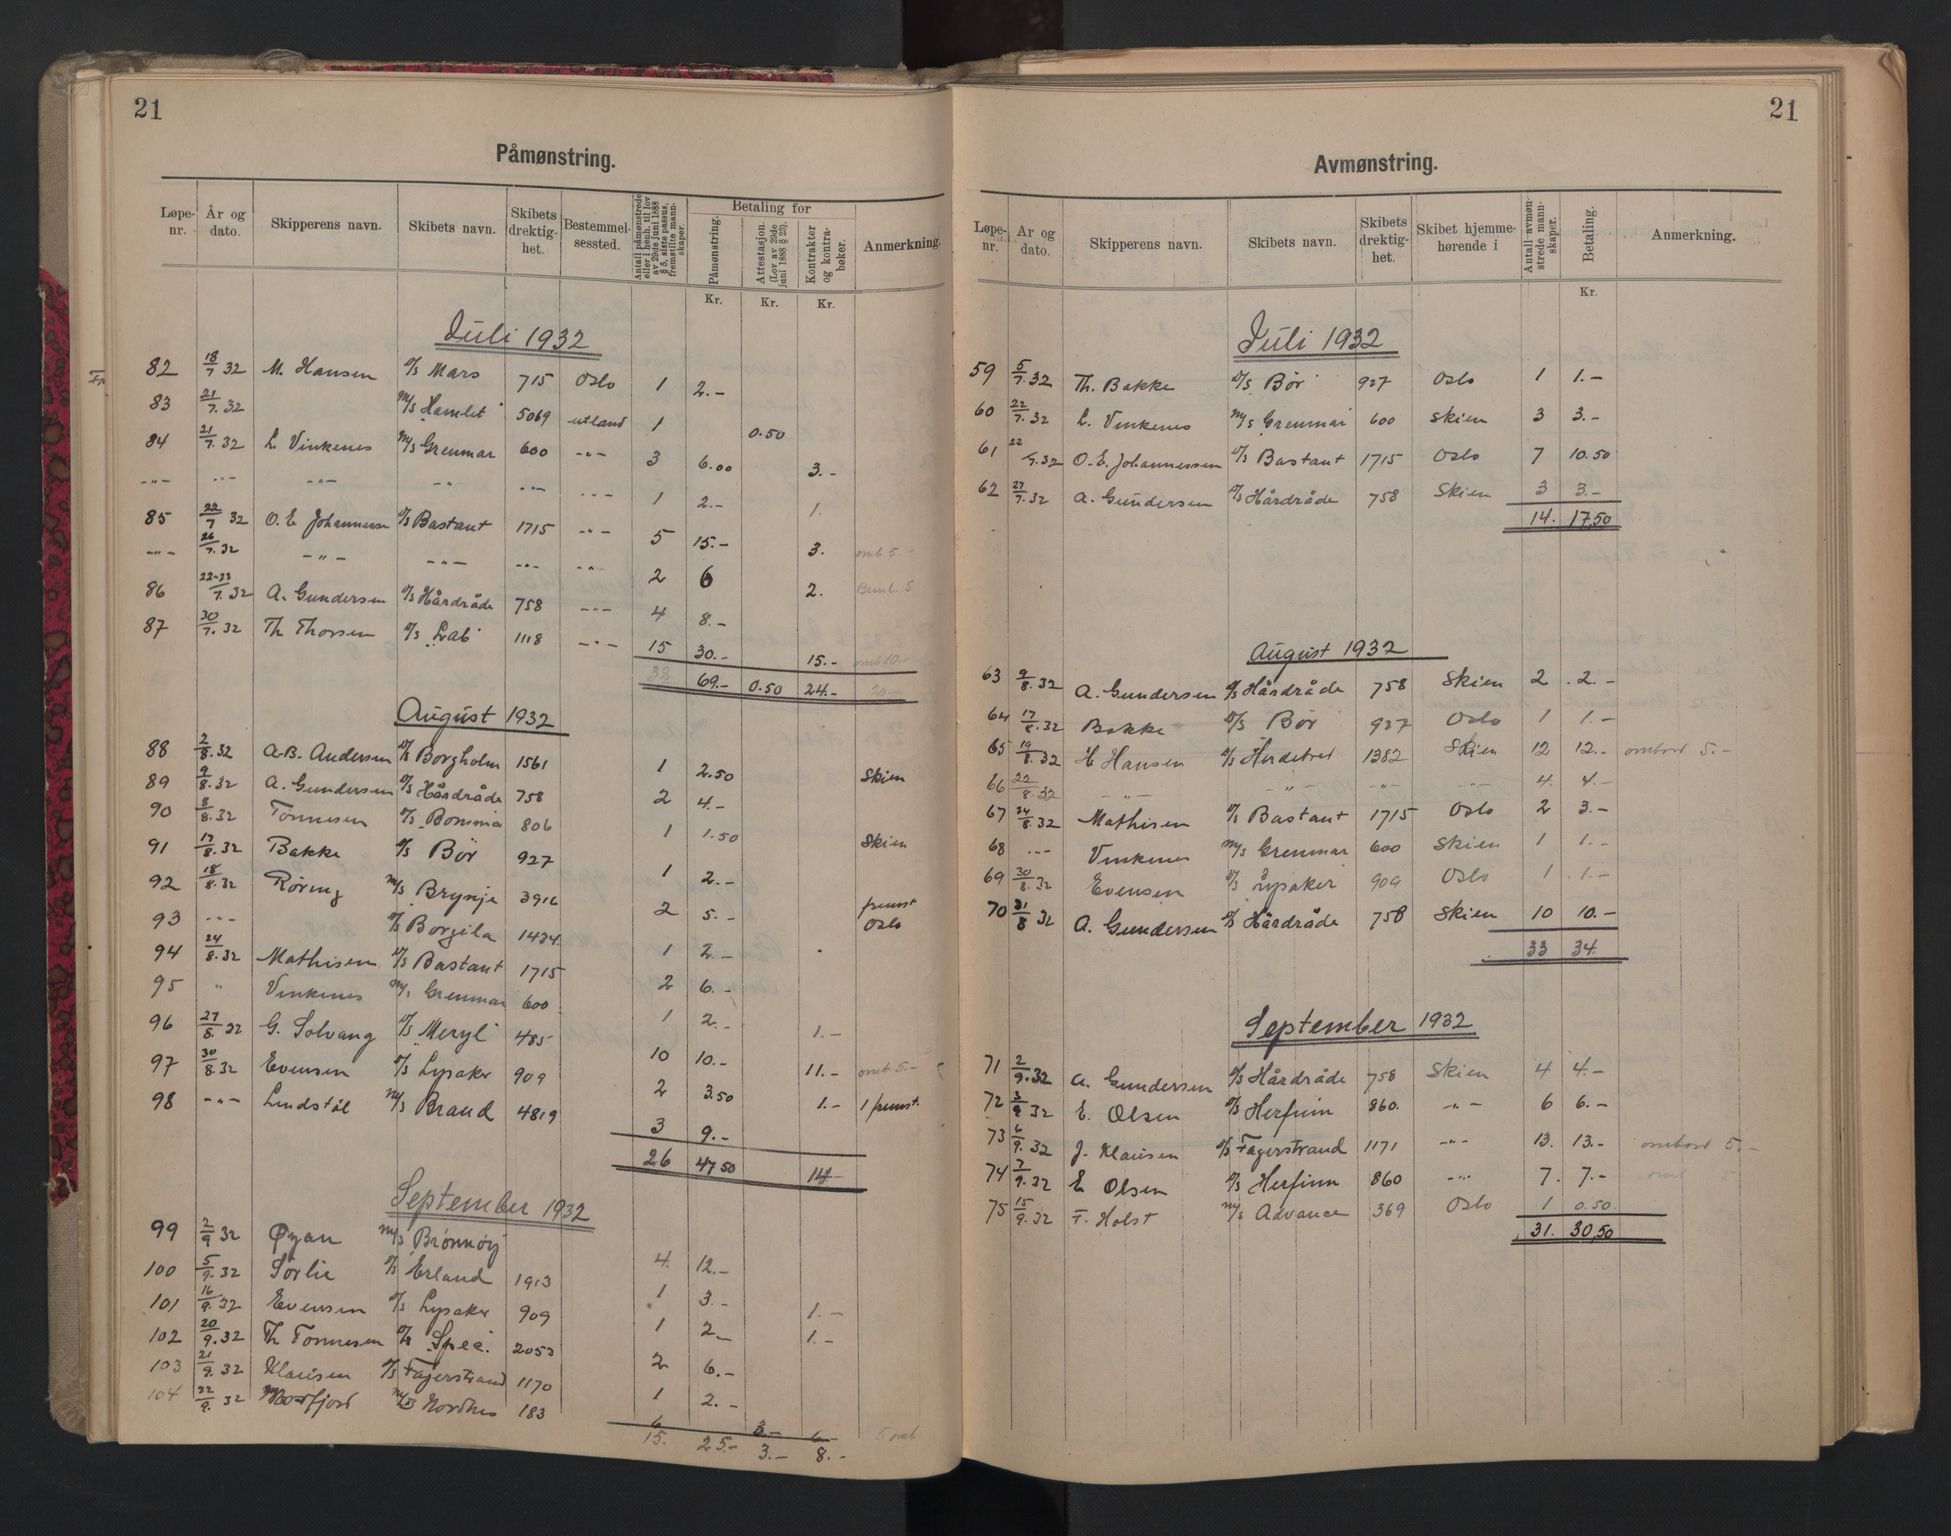 21
Påmønstring.
Løpe-nr. | År og dato. | Skipperens navn. | Skibets navn. | Skibets drektig-het. | Bestemmel-sessted. | Antall påmønstrede eller i henh. til lov av 29de juni 1888 § 5, siste passus, fremstilte mann-skaper. | Betaling for | Påmønstring. | Attestasjon. (Lov av 29de juni 1888 § 29). | Kontrakter og kontra-bøker. | Anmerkning.
Kr. | Kr. | Kr.
Juli 1932
82 18/7 32 M. Hansen D/S Mars 715 Oslo 1 2.-
83 21/7.32 M/S Hamlet 5069 utland 1 0.50
84 21/7.32 L. Vinkenes M/S Grenmar 600 -"- 3 6.00 3.-
-"- -"- -"- -"- -"- -"- 1 2.- 1.
85 22/7 32 O. E Johannesen D/S Bastant 1715 -"- 5 15.- 3. omb 5-
-"- 26/7.32 -"- -"- -"- -"- 2 6 2. 5
86 22-23/7.32 A. Gundersen D/S Hårdråde 758 -"- 4 8.-
87 30/7.32 Th Thorsen D/S Lab 1118 -"- 15 30.- 15.- omb 10.-
32 69.- 0.50 24.- 20.-
August 1932
88 2/8.32 A.B. Andersen D/S Borgholm 1561 1 2.50 Skien
89 9/8.32 A. Gundersen D/S Hårdråde 758 2 4.-
90 8/8.32 Tønnesen D/S Bomma 806 1 1.50 Skien
91 17/8.32 Bakke D/S Bør 927 1 2.-
92 18/8.32 Røring M/S Brynje 3916 2 5.- fremst
93 -"- D/S Borgila 1424 Oslo
94 24/8.32 Mathisen D/S Bastant 1715 1 2.-
95 " Vinkenes M/S Grenmar 600 2 6.-
96 27/8.32 G. Solvang D/S Meryl 485 1 2.- 1.-
97 30/8.32 Evensen D/S Lysaker 909 10 10.- 11.- omb 5.-
98 -"- Lindstøl M/S Brand 4819 2 3.50 1.- 1 fremst.
3 9.-
26 47 50 14-
September 1932
99 2/9 32 Øyan M/S Brønnøy 4. 12.-
100 5/9.32 Sørlie D/S Erland 1913 1 3.-
101 16/9.32 Evensen D/S Lysaker 909 1 2.- 1.-
102 20/9.32 Th Tønnesen D/S Spec. 2053 2 6.- 1.-
103 21/9.32 Klausen D/S Fagerstrand 1170 1 2.-
104 22/9. 32 M/S Nordnes 183 6 3- 6-
15. 25.- 3.- 8.- 5 omb
21
Avmønstring.
Løpe-nr. | År og dato. | Skipperens navn. | Skibets navn. | Skibets drektig-het. | Skibet hjemme-hørende i | Antall avmøn-strede mann-skaper. | Betaling. | Anmerkning.
Kr.
Juli 1932
59 5/7.32 Th. Bakke D/S Bør 927 Oslo 1 1.-
60 22/7.32 L. Vinkenes M/S Grenmar 600 Skien 3 3.-
61 22/7.32 O. E. Johannessen D/S Bastant 1715 Oslo 7 10.50
62 27/7.32 A. Gundersen D/S Hårdråde 758 Skien 3 3.-
14. 17,50
August 1932
63 9/8.32 A. Gundersen D/S Hårdråde 758 Skien 2 2.-
64 17/8.32 Bakke D/S Bør 927 Oslo 1 1.-
65 19/8.32 H Hansen D/S 1382 Skien 12 12.- ombord 5.-
66 22/8.32 -"- -"- -"- -"- 4. 4.-
67 24/8.32 Mathisen D/S Bastant 1715 Oslo 2 3.-
68 -"- Vinkenes M/S Grenmar 600 Skien 1 1.-
69 30/8.32 Evensen D/S Lysaker 909 Oslo 1 1.-
70 31/8 32 A. Gundersen D/S Hårdråde 758 Skien 10 10.-
33 34
September 1932
71 2/9.32 A. Gundersen D/S Hårdråde 758 Skien 4 4.-
72 3/9 32 E. Olsen D/S Herfinn 860. -"- 6 6.-
73 6/9. 32 J. Klausen D/S Fagerstrand 1171 -"- 13. 13.- ombord 5.-
74 7/9.32 E Olsen D/S Herfinn 860 -"- 7. 7.- omb 5
75 15/9.32 F. Holst M/S Advance 369 Oslo 1 0.50
31. 30,50